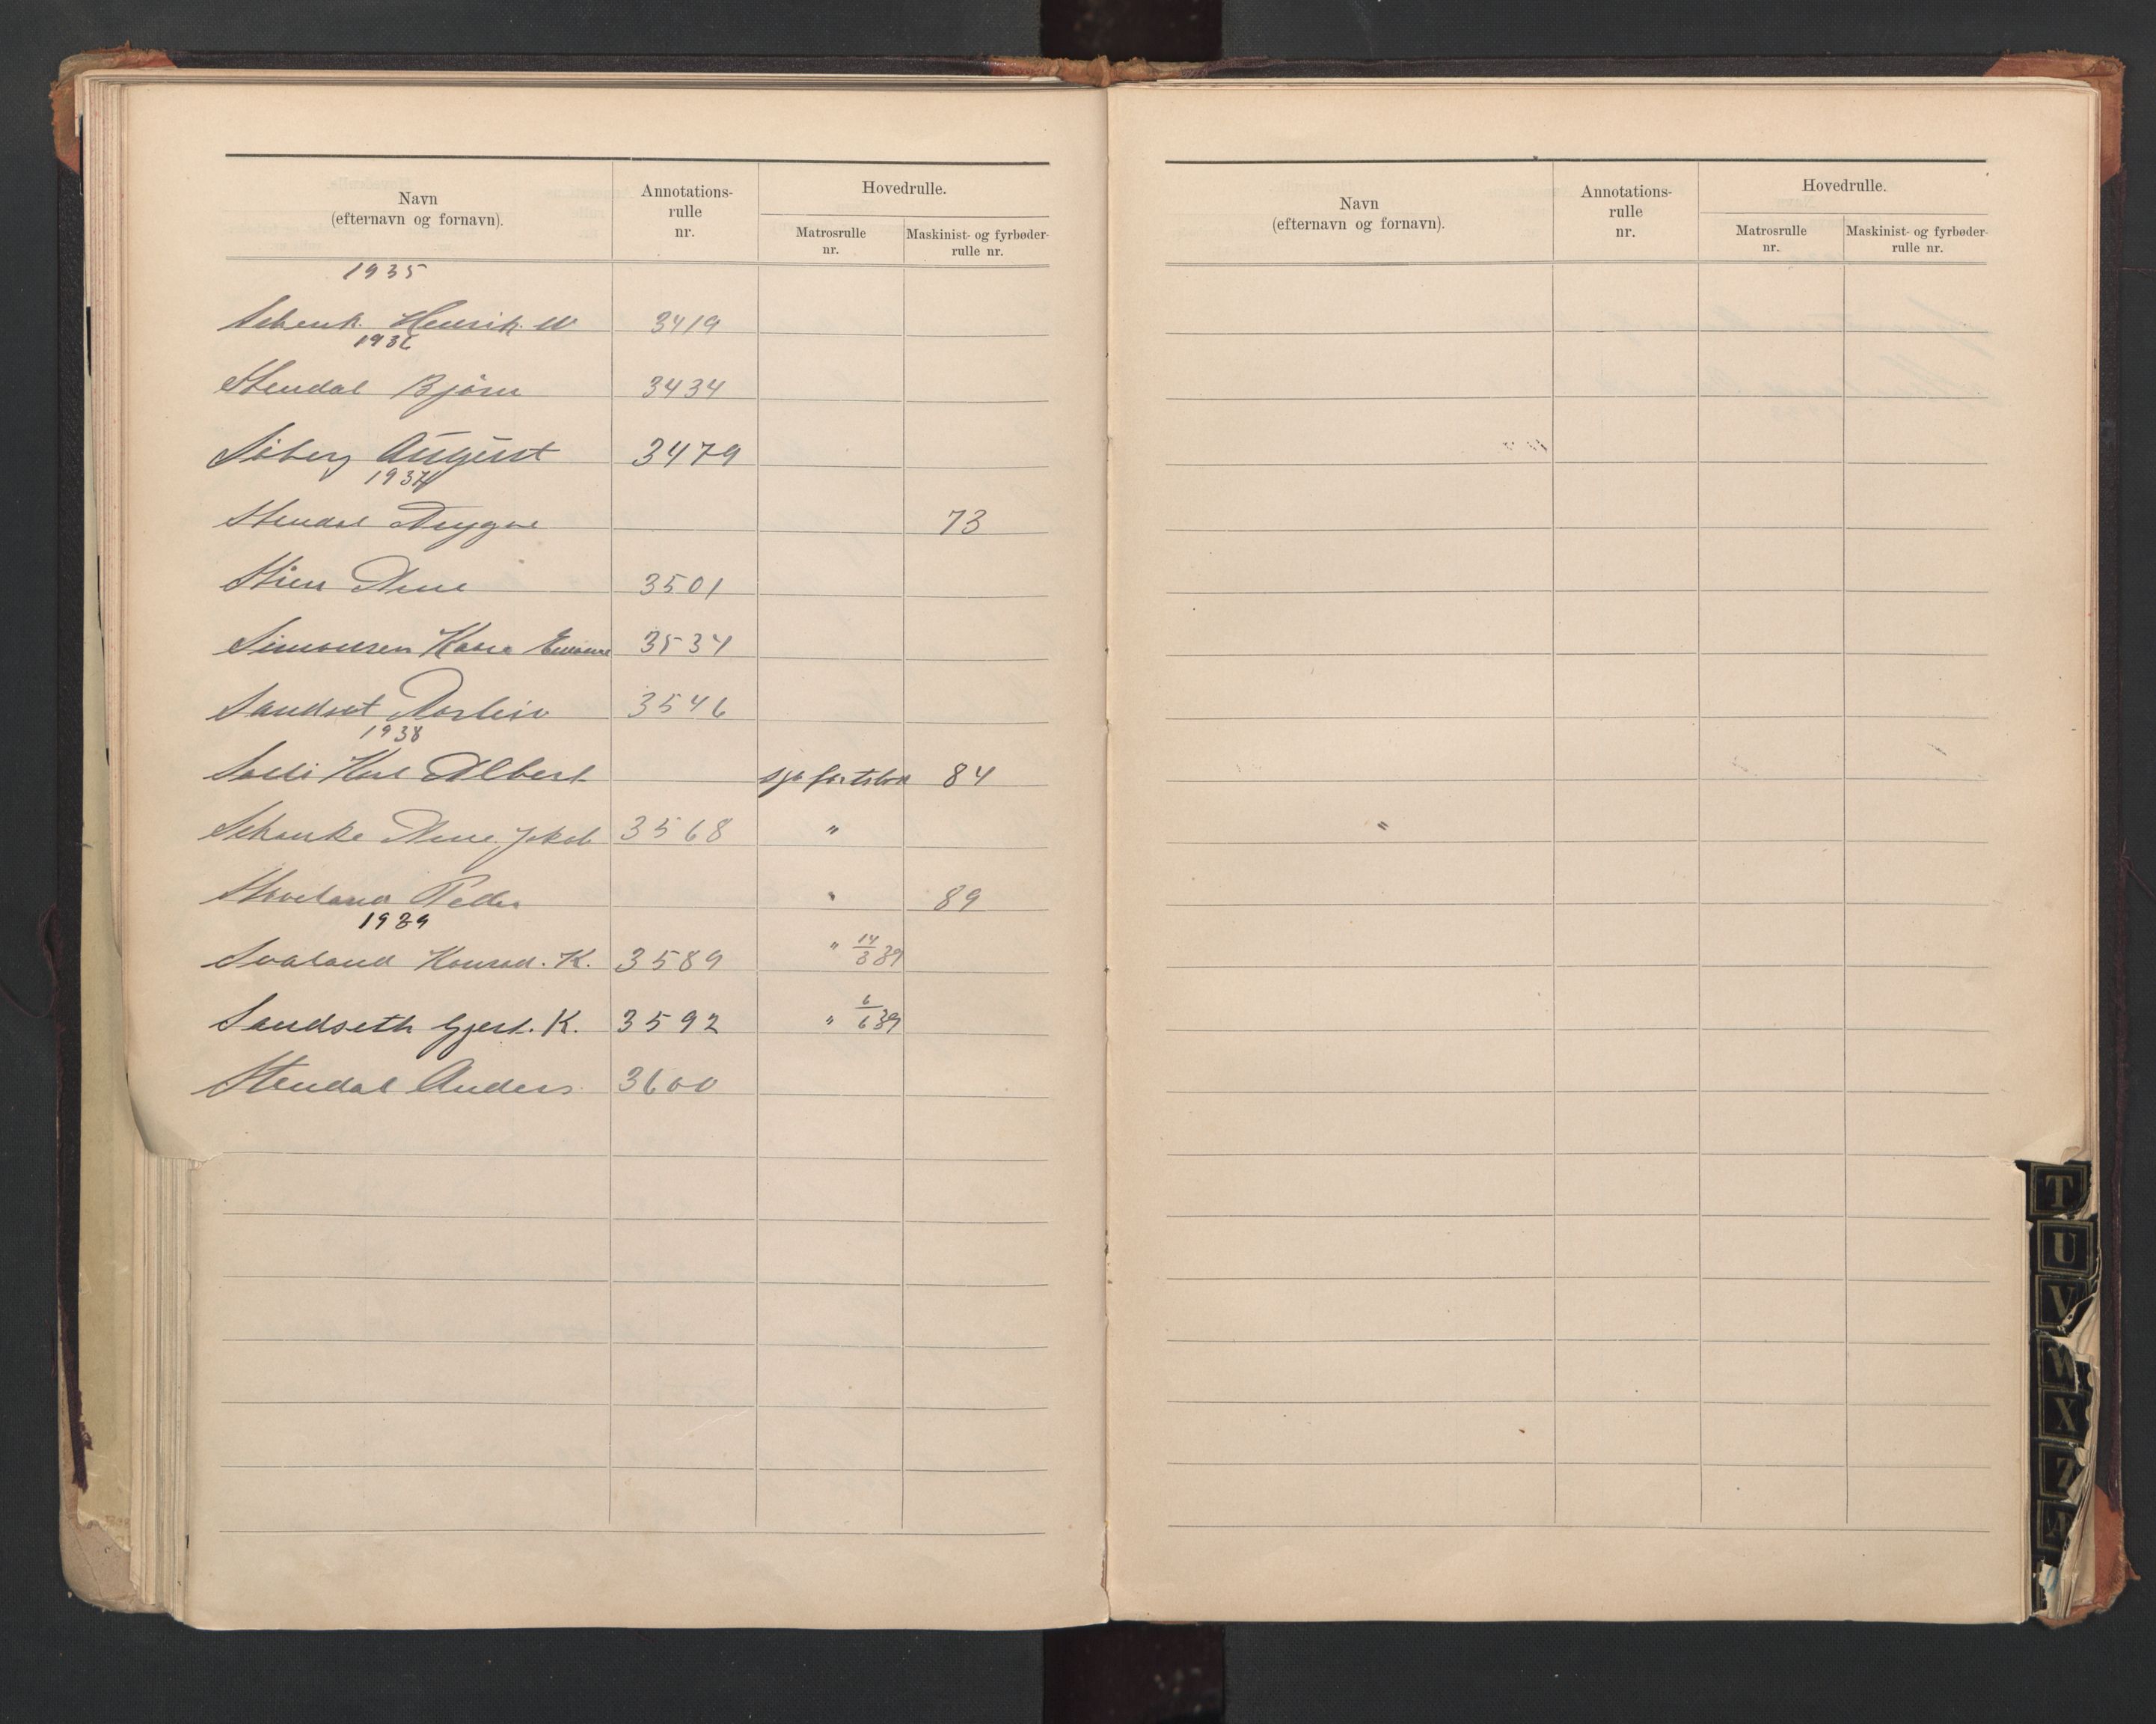 Navn
(efternavn og fornavn).
Annotations-
rulle
nr.
Hovedrulle.
Matrosrulle
nr.
Maskinist- og fyrbøder-
rulle nr.
1935
Schenk. Henrik. W 3419
1936
Stendal Bjørn 3434
Søberg August 3479
1937
Stendal Trygve 73
Støen Arne 3501
Simonsen Kaare 3534
Sandset Torleiv 3546
1938
Solli Karl Albert 84
Schanke Arne Jakob 3568 "
Peder " 89
1939
Svaland Konrad. K. 3589 " 14/3 39
Sandseth Gjert. K. 3592 " 6/6 39
Stendal Anders 3600
Navn
(efternavn og fornavn).
Annotations-
rulle
nr.
Hovedrulle.
Matrosrulle
nr.
Maskinist- og fyrbøder-
rulle nr.
"
T
U
V
W
X
Z